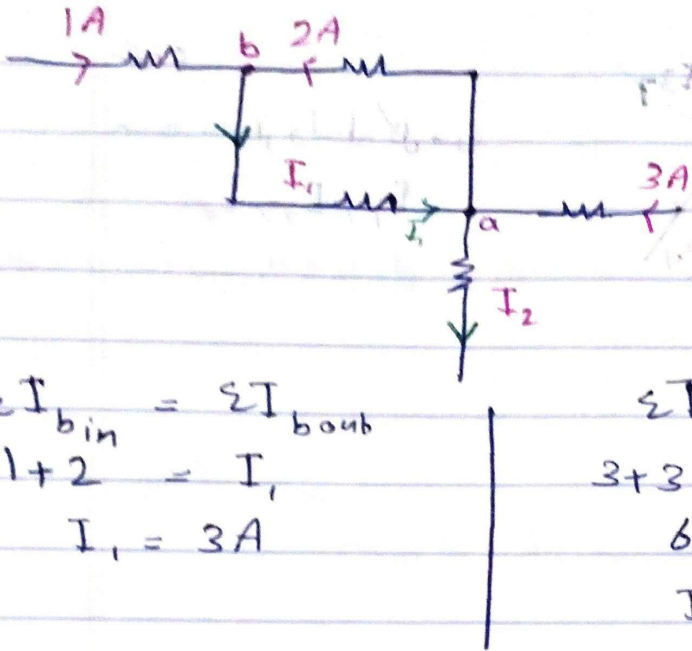 1A
b 2A
I₁
3A
I₁
a
I₂
ΣI b in = ΣI b out
1+2 = I₁
I₁ = 3A
ΣI
3+3
6